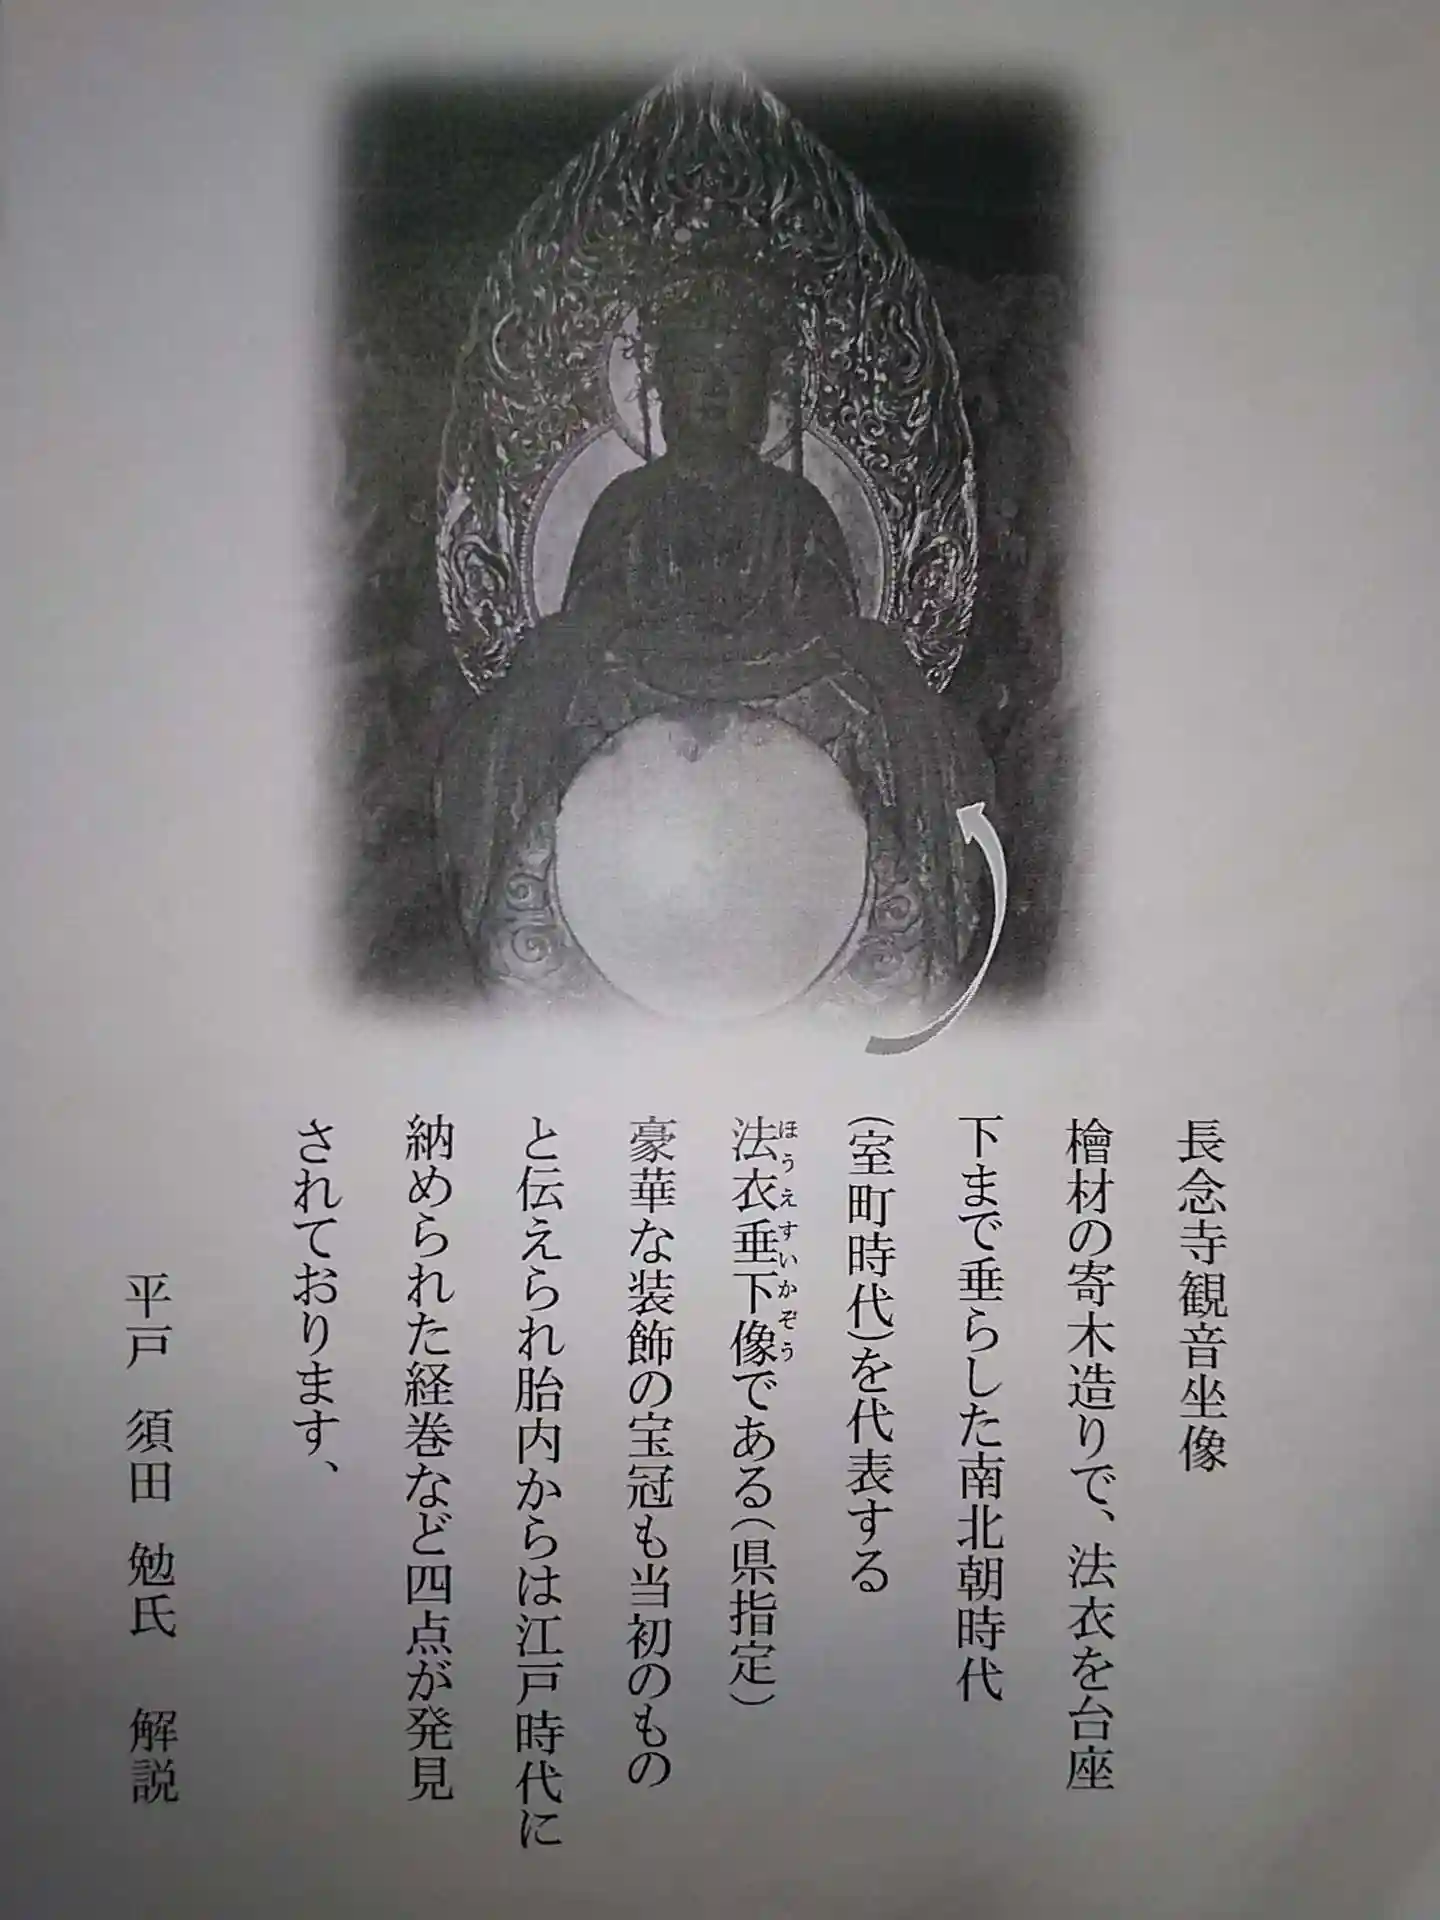 長念寺観音坐像
檜材の寄木造りで、法衣を台座
下まで垂らした南北朝時代
(室町時代)を代表する
法衣垂下像である(県指定)
ほうえすいかぞう
豪華な装飾の宝冠も当初のもの
と伝えられ胎内からは江戸時代に
納められた経巻など四点が発見
されております、
平戸 須田 勉氏 解説